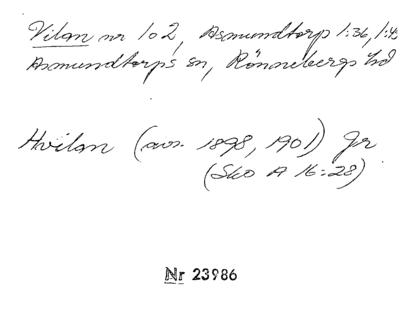 Vilan nr 1o2, Asmundtorp 1:36, 1:43
Asmundtorps sn, Rönnebergs hd
Hvilan (avs. 1898, 1901) Jr
(Sko A 16:28)
Nr 23986